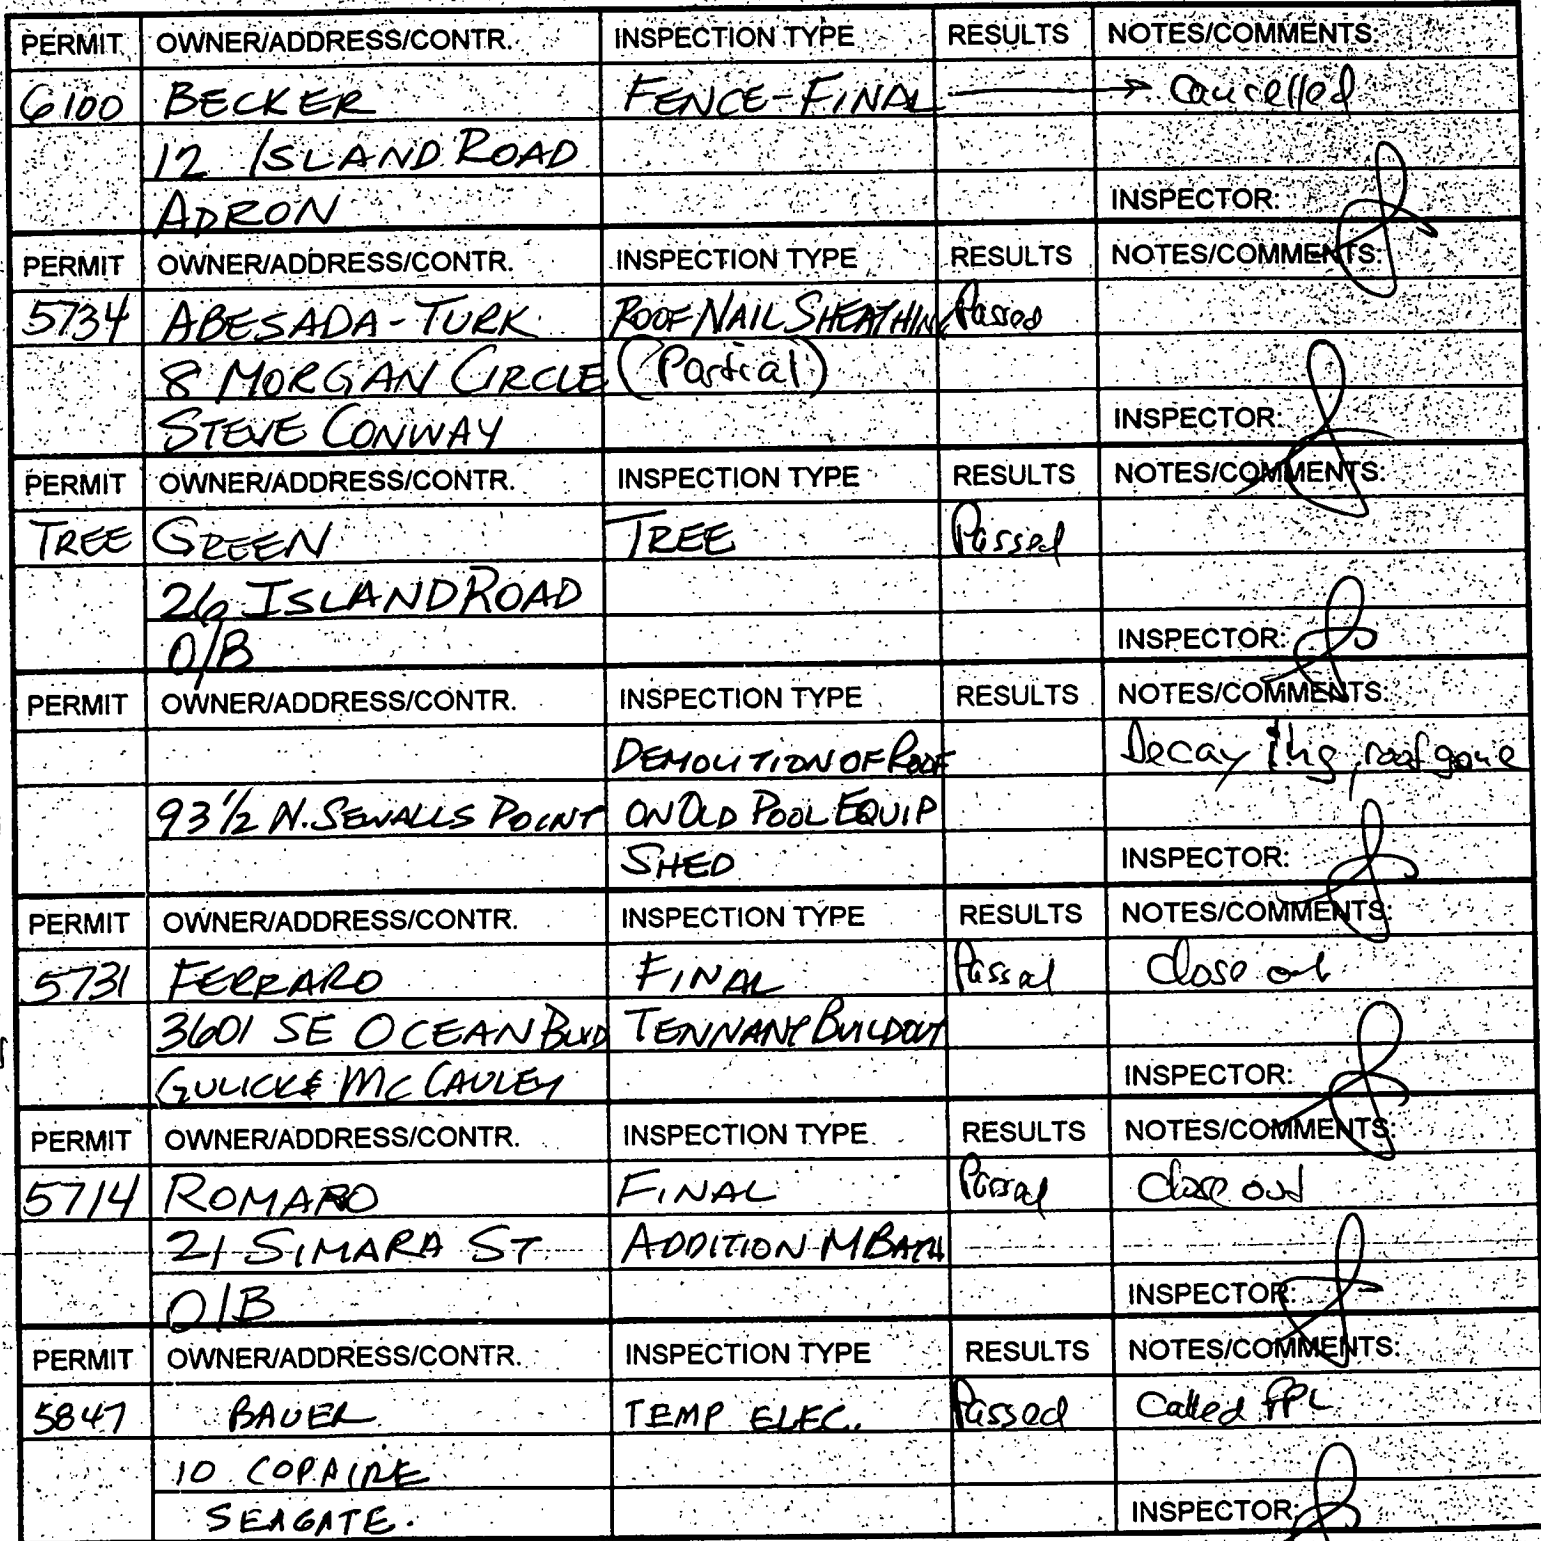 PERMIT OWNER/ADDRESS/CONTR. INSPECTION TYPE RESULTS NOTES/COMMENTS:
6100 BECKER FENCE-FINAL → Cancelled
12 ISLAND ROAD
ADRON INSPECTOR:
PERMIT OWNER/ADDRESS/CONTR. INSPECTION TYPE RESULTS NOTES/COMMENTS:
5734 ABESADA-TURK ROOF NAIL SHEATHING Passed
8 MORGAN CIRCLE (Partial)
STEVE CONWAY INSPECTOR:
PERMIT OWNER/ADDRESS/CONTR. INSPECTION TYPE RESULTS NOTES/COMMENTS:
TREE GREEN TREE Passed
26 ISLAND ROAD
O/B INSPECTOR:
PERMIT OWNER/ADDRESS/CONTR. INSPECTION TYPE RESULTS NOTES/COMMENTS:
DEMOLITION OF ROOF Decaying, roof gone
93 1/2 N. SEWALLS POINT ON OLD POOL EQUIP
SHED INSPECTOR:
PERMIT OWNER/ADDRESS/CONTR. INSPECTION TYPE RESULTS NOTES/COMMENTS:
5731 FERRARO FINAL Passed Close out
3601 SE OCEAN BLVD TENNANT BUILDOUT
GULICK & MCCAULEY INSPECTOR:
PERMIT OWNER/ADDRESS/CONTR. INSPECTION TYPE RESULTS NOTES/COMMENTS:
5714 ROMARO FINAL Passed Close out
21 SIMARA ST ADDITION-MBATH
O/B INSPECTOR:
PERMIT OWNER/ADDRESS/CONTR. INSPECTION TYPE RESULTS NOTES/COMMENTS:
5847 BAUER TEMP ELEC. Passed Called FPL
10 COPAIRE
SEAGATE. INSPECTOR: